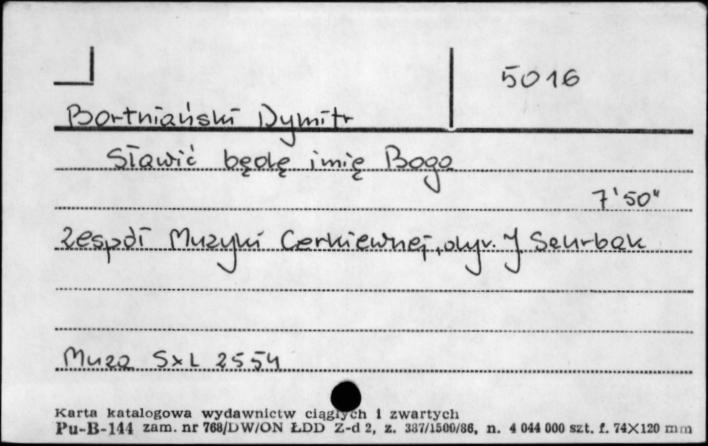 5016
Bortniański Dymitr
Sławić będę imię Boga
7'50"
Zespół Muzyki Cerkiewnej, dyr. J Szurbak
Muza SxL 2554
Karta katalogowa wydawnictw ciągłych i zwartych
Pu-B-144 zam. nr 768/DW/ON ŁDD Z-d 2, z. 387/1500/86, n. 4 044 000 szt. f. 74X120 mm